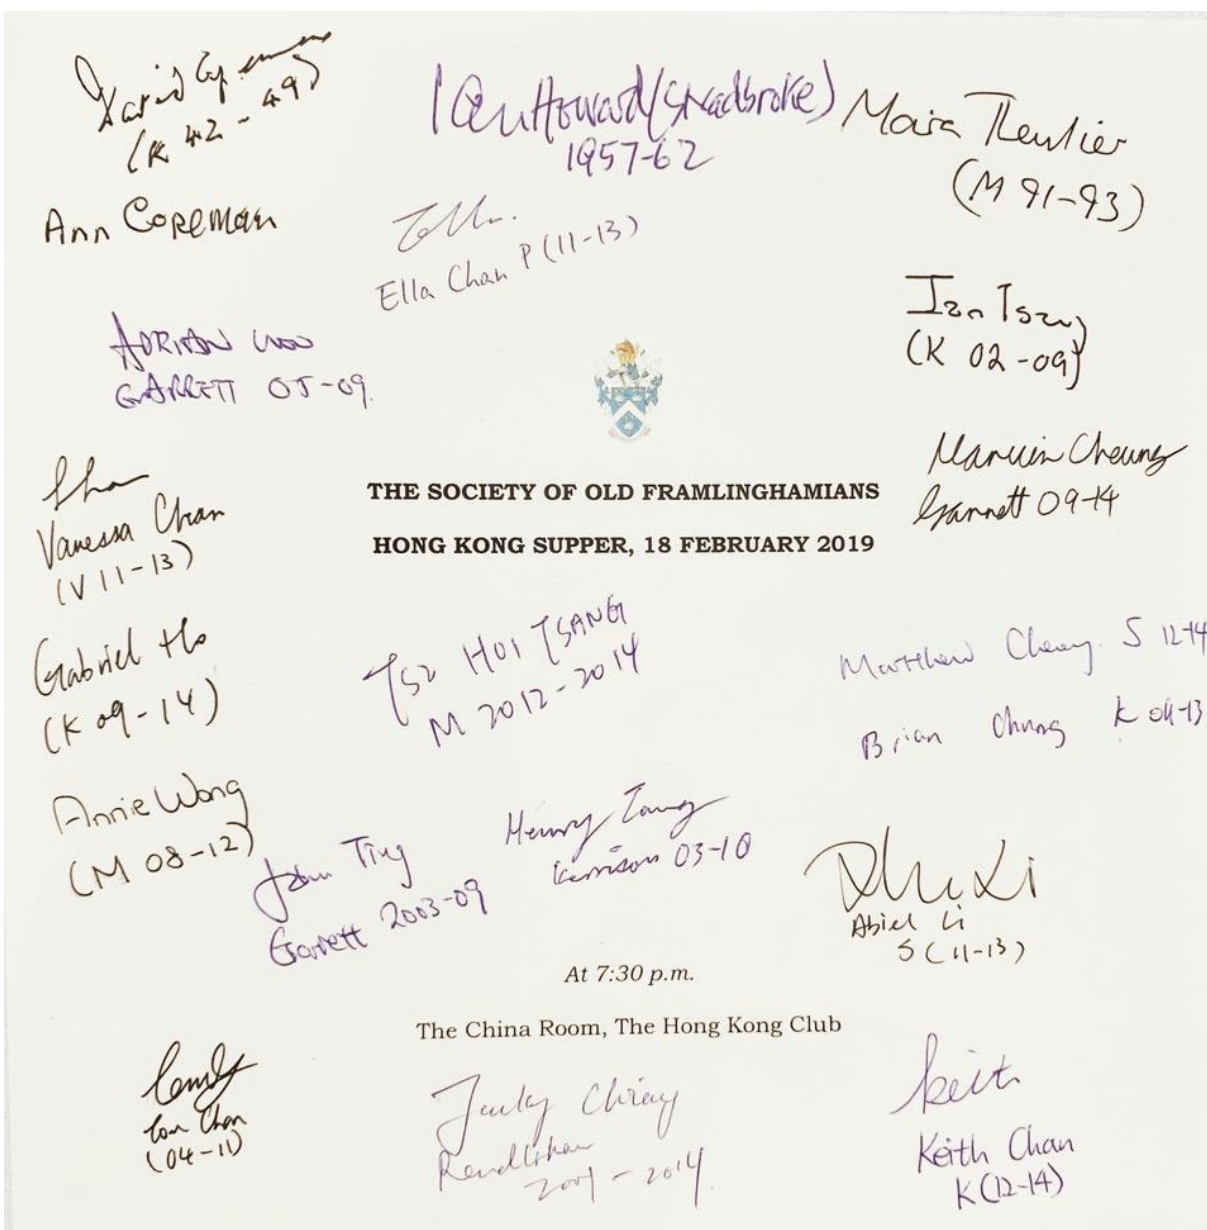 David Copeman
(K 42-49)
Ann Copeman
Howard (Stradbroke)
1957-62
Ella Chan P (11-13)
(M 91-93)
Ian Tsang
(K 02-09)
ADRIAN WOO
GARRETT 05-09
Vanessa Chan
(V 11-13)
THE SOCIETY OF OLD FRAMLINGHAMIANS
HONG KONG SUPPER, 18 FEBRUARY 2019
Cheung
Garrett 09-14
Gabriel Ho
(K 09-14)
TSZ HOI TSANG
M 2012-2014
Matthew Cheung S 12-14
Brian Chung K 04-13
Annie Wong
(M 08-12)
John Ting
Garrett 2003-09
Henry Tang
Kerrison 03-10
Abiel Li
S (11-13)
At 7:30 p.m.
The China Room, The Hong Kong Club
Chan
(04-11)
Rendlisham
2014
Keith
Keith Chan
K (12-14)